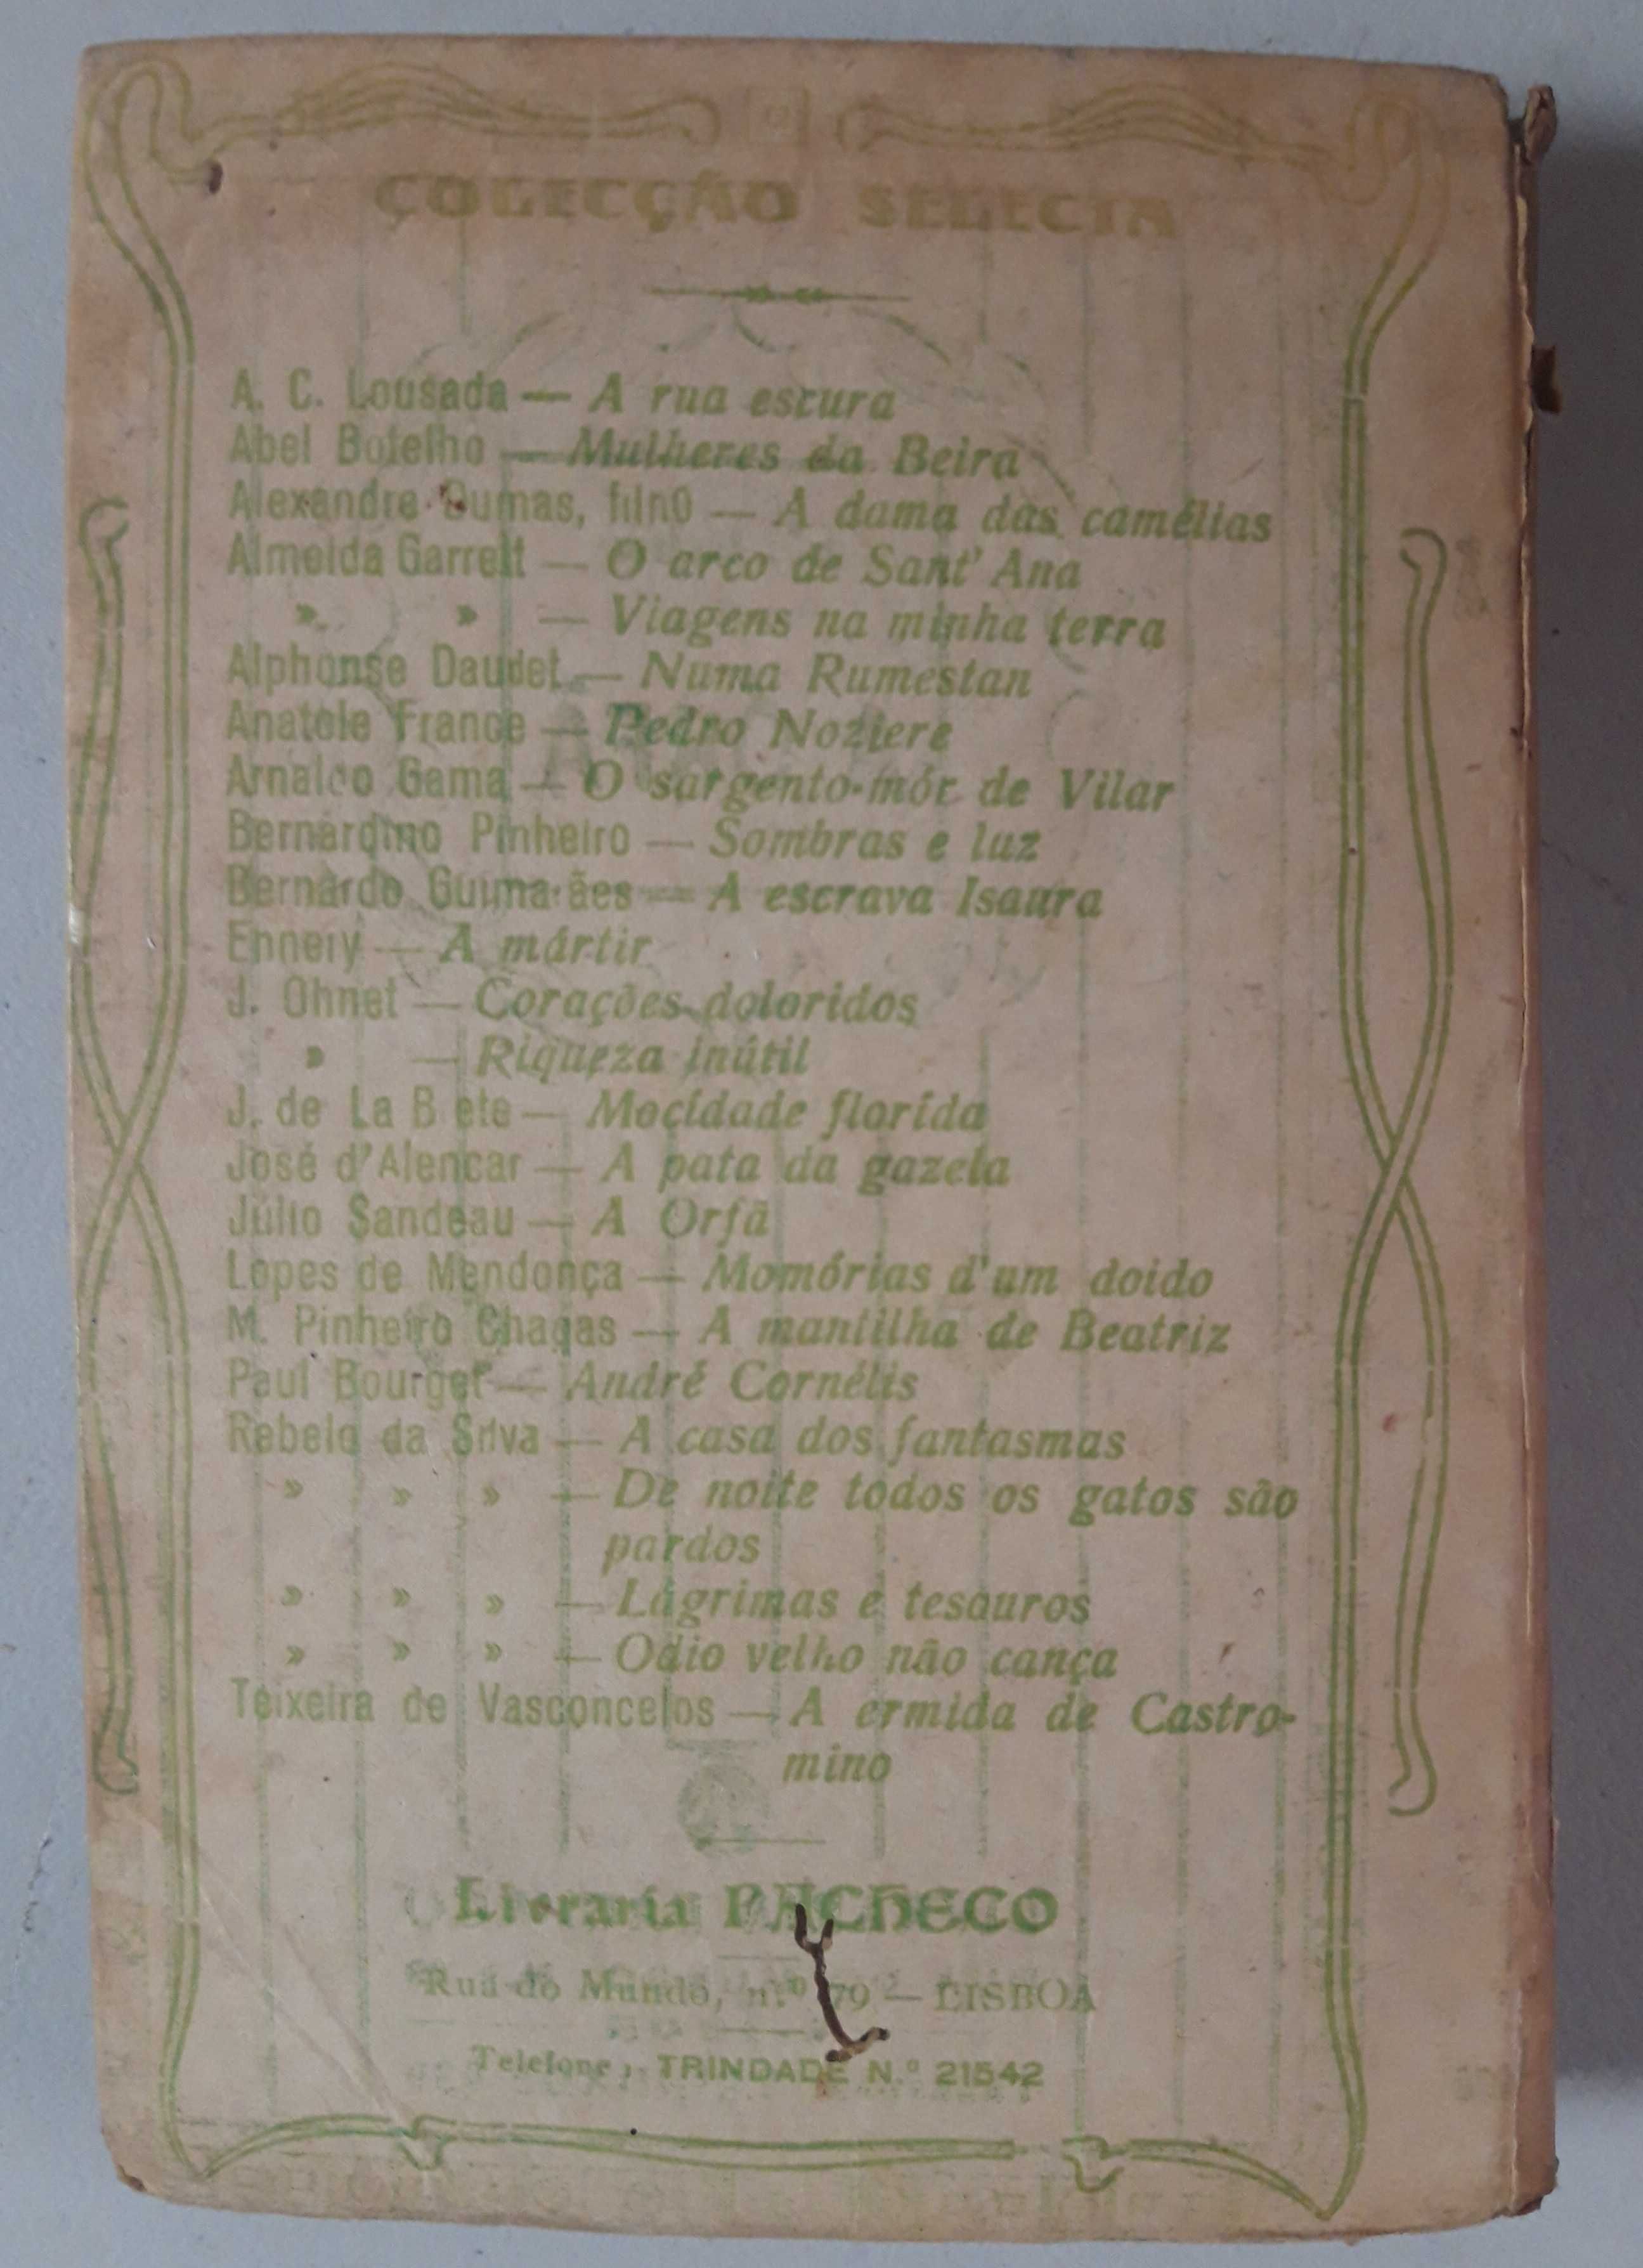 COLECÇÃO SELECTA
A. C. Lousada — A rua escura
Abel Botelho — Mulheres da Beira
Alexandre Dumas, filho — A dama das camélias
Almeida Garrett — O arco de Sant' Ana
» » — Viagens na minha terra
Alphonse Daudet — Numa Rumestan
Anatole France — Pedro Noziere
Arnaldo Gama — O sargento-mór de Vilar
Bernardino Pinheiro — Sombras e luz
Bernardo Guimarães — A escrava Isaura
Ennery — A mártir
J. Ohnet — Corações doloridos
» — Riqueza inútil
J. de La B ete — Mocidade florida
José d'Alencar — A pata da gazela
Júlio Sandeau — A Orfã
Lopes de Mendonça — Momórias d'um doido
M. Pinheiro Chagas — A mantilha de Beatriz
Paul Bourget — André Cornélis
Rebelo da Silva — A casa dos fantasmas
» » » — De noite todos os gatos são
pardos
» » » — Lágrimas e tesouros
» » » — Odio velho não cança
Teixeira de Vasconcelos — A ermida de Castro-
mino
Livraria PACHECO
Rua do Mundo, n.º 79 — LISBOA
Telefone, TRINDADE N.º 21542